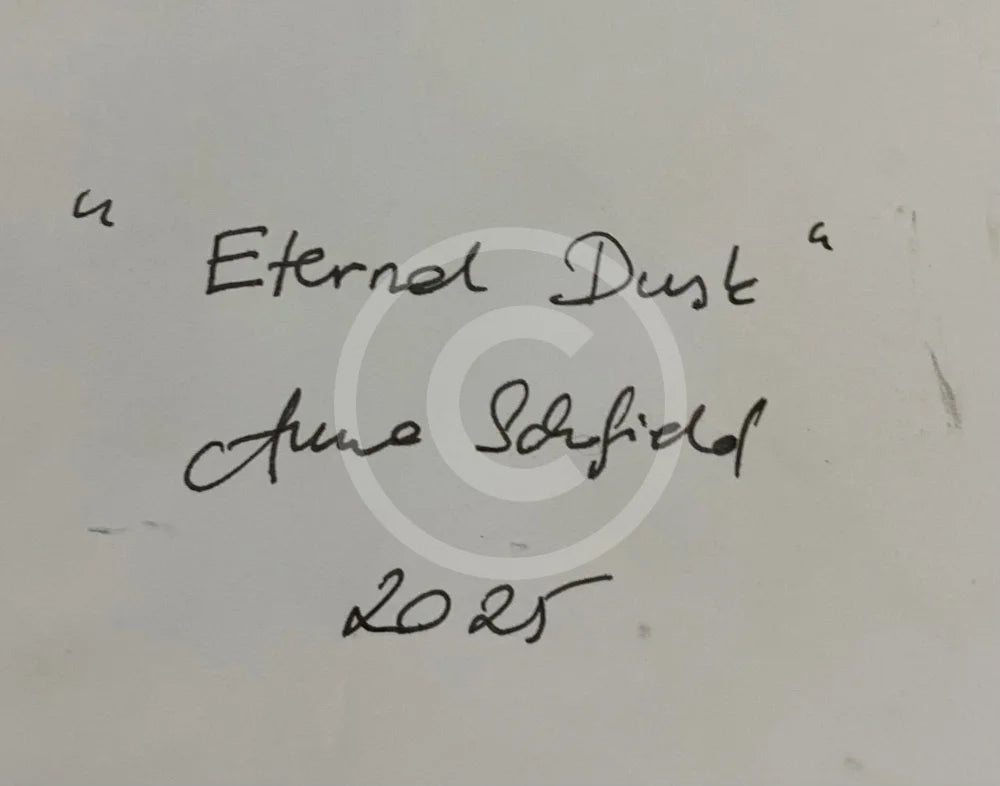 "Eternal Dusk"
Anna Schofield
2025